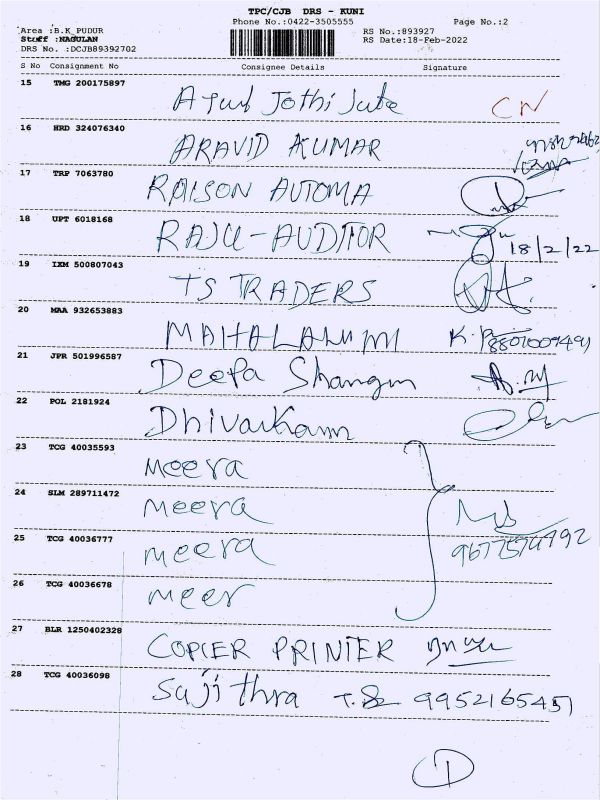 TPC/CJB DRS - KUNI
Phone No.:0422-3505555 Page No.:2
Area :B.K_PUDUR RS No.:893927
Stuff :NAGULAN RS Date:18-Feb-2022
DRS No. :DCJB89392702
S No Consignment No Consignee Details Signature
15 TMG 200175897 Jothi Jute CN
16 HRD 324076340 ARAVID KUMAR
17 TRP 7063780 RAISON AUTOMA
18 UPT 6018168 RAJU-AUDITOR 18/2/22
19 IXM 500807043 TS TRADERS
20 MAA 932653883 K.
21 JPR 501996587 Deepa
22 POL 2181924
23 TCG 40035593 Meera
24 SLM 289711472 Meera
25 TCG 40036777 Meera
26 TCG 40036678 meer
27 BLR 1250402328 COPIER PRINTER
28 TCG 40036098 Sujithra 9952165451